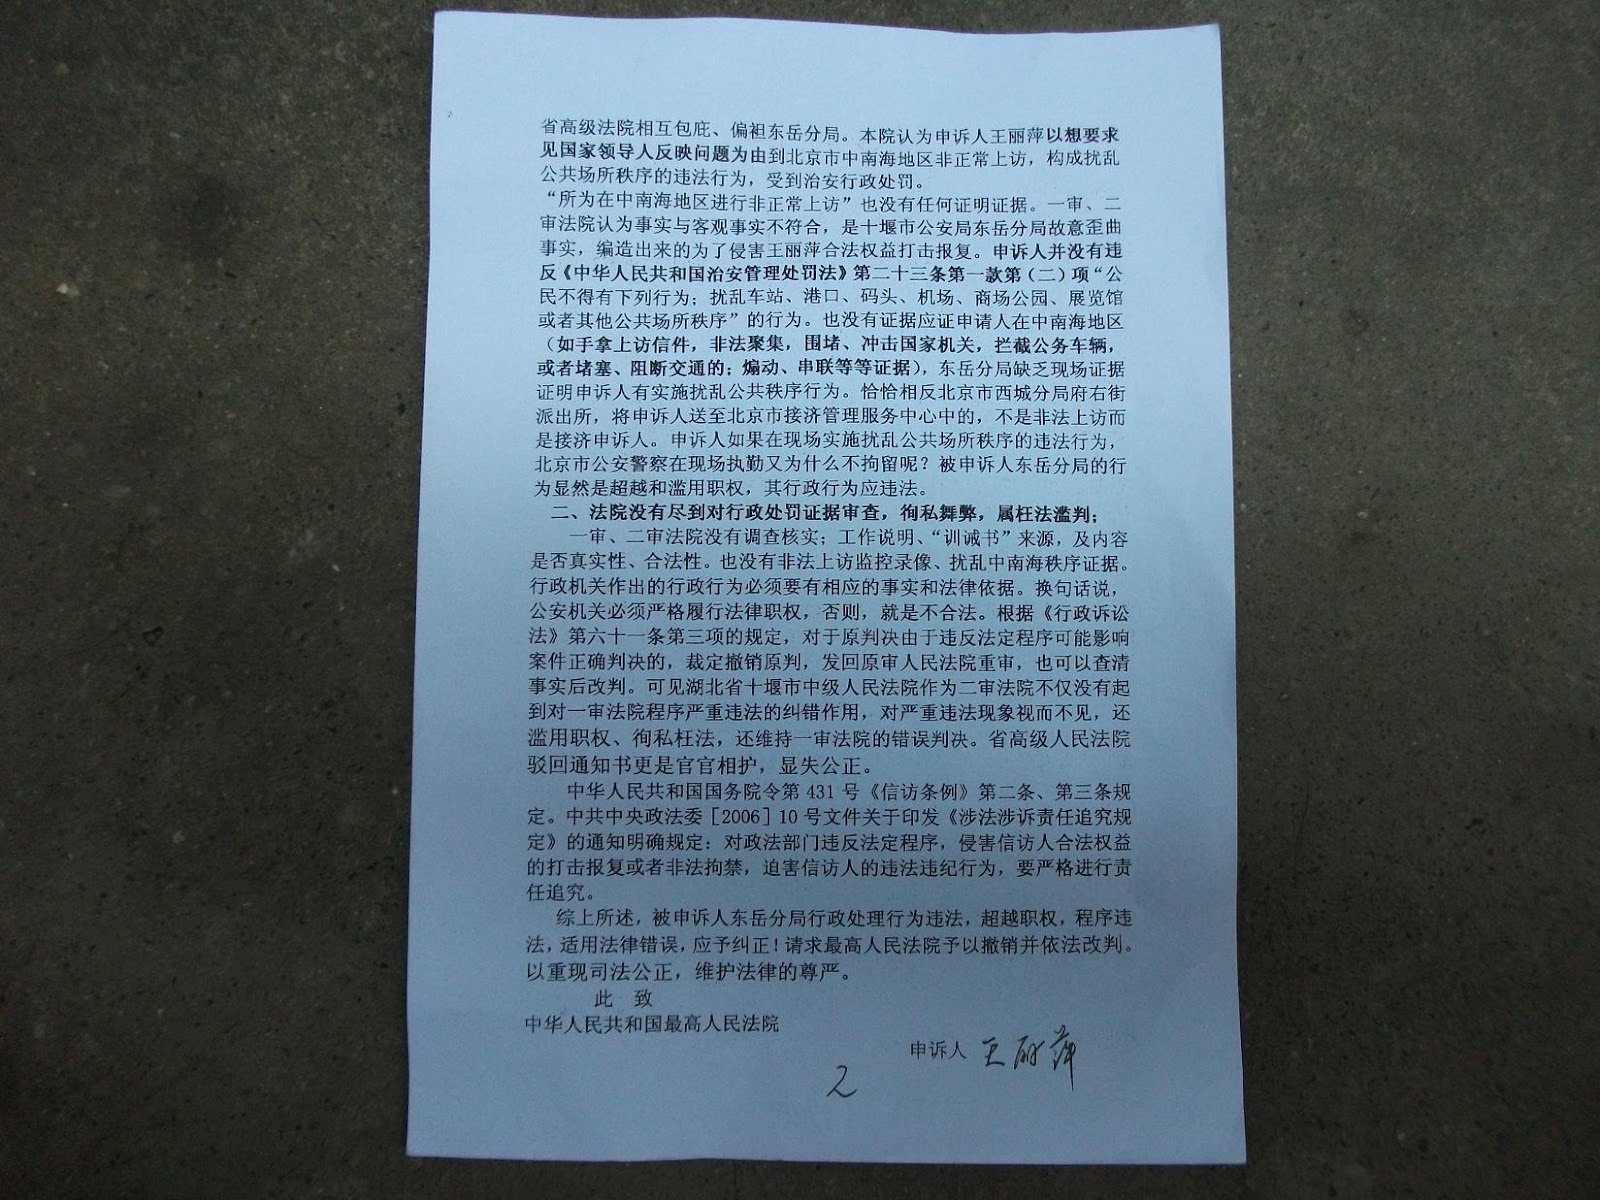 省高级法院相互包庇、偏袒东岳分局。本院认为申诉人王丽萍以想要求
见国家领导人反映问题为由到北京市中南海地区非正常上访，构成扰乱
公共场所秩序的违法行为，受到治安行政处罚。
“所为在中南海地区进行非正常上访”也没有任何证明证据。一审、二
审法院认为事实与客观事实不符合，是十堰市公安局东岳分局故意歪曲
事实，编造出来的为了侵害王丽萍合法权益打击报复。申诉人并没有违
反《中华人民共和国治安管理处罚法》第二十三条第一款第（二）项“公
民不得有下列行为；扰乱车站、港口、码头、机场、商场公园、展览馆
或者其他公共场所秩序”的行为。也没有证据应证申请人在中南海地区
（如手拿上访信件，非法聚集，围堵、冲击国家机关，拦截公务车辆，
或者堵塞、阻断交通的；煽动、串联等等证据），东岳分局缺乏现场证据
证明申诉人有实施扰乱公共秩序行为。恰恰相反北京市西城分局府右街
派出所，将申诉人送至北京市接济管理服务中心中的，不是非法上访而
是接济申诉人。申诉人如果在现场实施扰乱公共场所秩序的违法行为，
北京市公安警察在现场执勤又为什么不拘留呢？被申诉人东岳分局的行
为显然是超越和滥用职权，其行政行为应违法。
二、法院没有尽到对行政处罚证据审查，徇私舞弊，属枉法滥判；
一审、二审法院没有调查核实；工作说明、“训诫书”来源，及内容
是否真实性、合法性。也没有非法上访监控录像、扰乱中南海秩序证据。
行政机关作出的行政行为必须要有相应的事实和法律依据。换句话说，
公安机关必须严格履行法律职权，否则，就是不合法。根据《行政诉讼
法》第六十一条第三项的规定，对于原判决由于违反法定程序可能影响
案件正确判决的，裁定撤销原判，发回原审人民法院重审，也可以查清
事实后改判。可见湖北省十堰市中级人民法院作为二审法院不仅没有起
到对一审法院程序严重违法的纠错作用，对严重违法现象视而不见，还
滥用职权、徇私枉法，还维持一审法院的错误判决。省高级人民法院
驳回通知书更是官官相护，显失公正。
中华人民共和国国务院令第 431 号《信访条例》第二条、第三条规
定。中共中央政法委［2006］10 号文件关于印发《涉法涉诉责任追究规
定》的通知明确规定：对政法部门违反法定程序，侵害信访人合法权益
的打击报复或者非法拘禁，迫害信访人的违法违纪行为，要严格进行责
任追究。
综上所述，被申诉人东岳分局行政处理行为违法，超越职权，程序违
法，适用法律错误，应予纠正！请求最高人民法院予以撤销并依法改判。
以重现司法公正，维护法律的尊严。
此 致
中华人民共和国最高人民法院
申诉人 王丽萍
2